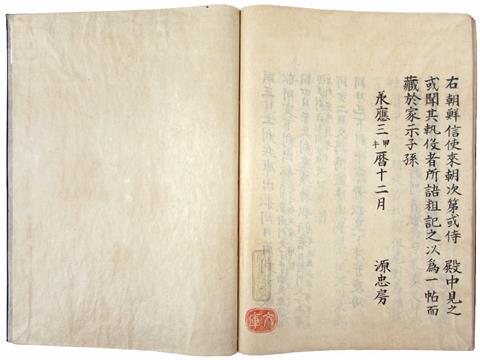 右朝鮮信使来朝次第或侍　殿中見之
或聞其執役者所諳粗記之以為一帖而
藏於家示子孫
承應三甲午暦十二月　源忠房
文庫